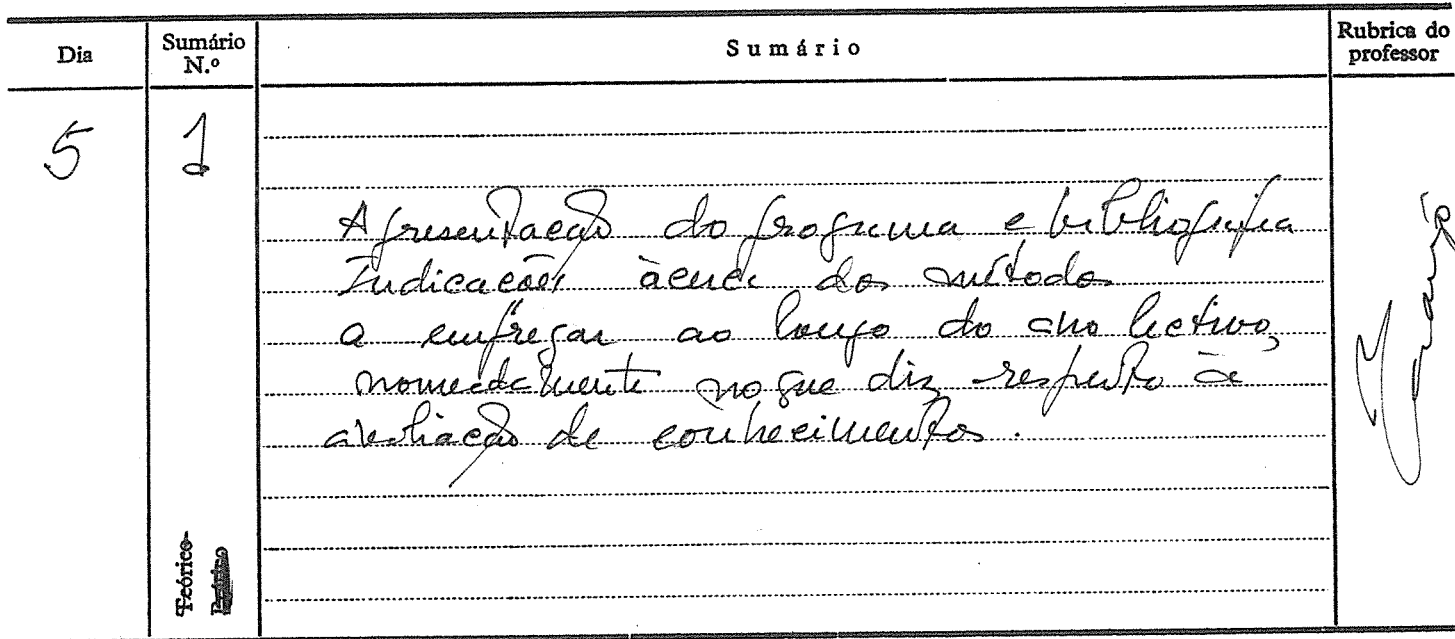 Dia
Sumário N.º
Sumário
Rubrica do professor
5
1
Apresentação do programa e bibliografia
Indicações àcerca dos métodos
a empregar ao longo do ano lectivo,
nomeadamente no que diz respeito à
avaliação de conhecimentos.
Teórico-